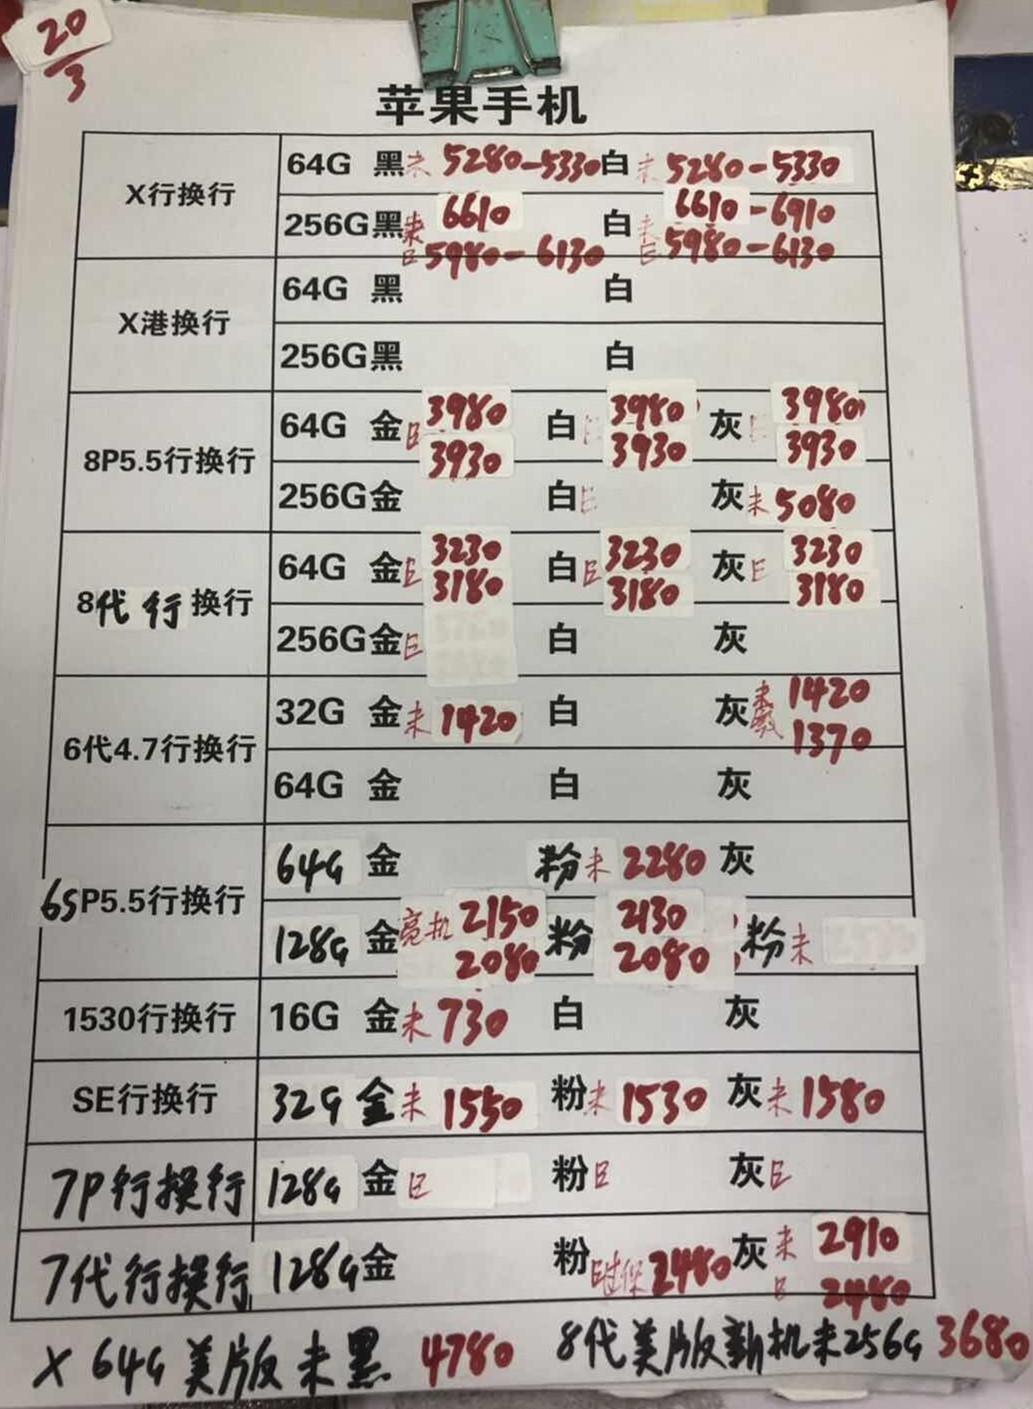 20
3
苹果手机
X行换行
64G 黑 未 5280-5330 白 未 5280-5330
256G 黑 未 6610 白 未 6610-6910
已 5980-6130 已 5980-6130
X港换行
64G 黑 白
256G 黑 白
8P5.5行换行
64G 金 已 3980 白 已 3980 灰 已 3980
3930 3930 3930
256G 金 白 已 灰 未 5080
8代行换行
64G 金 已 3230 白 已 3230 灰 已 3230
3180 3180 3180
256G 金 已 白 灰
6代4.7行换行
32G 金 未 1420 白 灰 未 1420
1370
64G 金 白 灰
6SP5.5行换行
64G 金 粉 未 2280 灰
128G 金 亮机 2150 粉 2130 粉 未
2080 2080
1530行换行
16G 金 未 730 白 灰
SE行换行
32G 金 未 1550 粉 未 1530 灰 未 1580
7P行换行
128G 金 已 粉 已 灰 已
7代行换行
128G 金 粉 已过保 2480 灰 未 2910
已 2480
X 64G 美版 未 黑 4780 8代美版新机未256G 3680